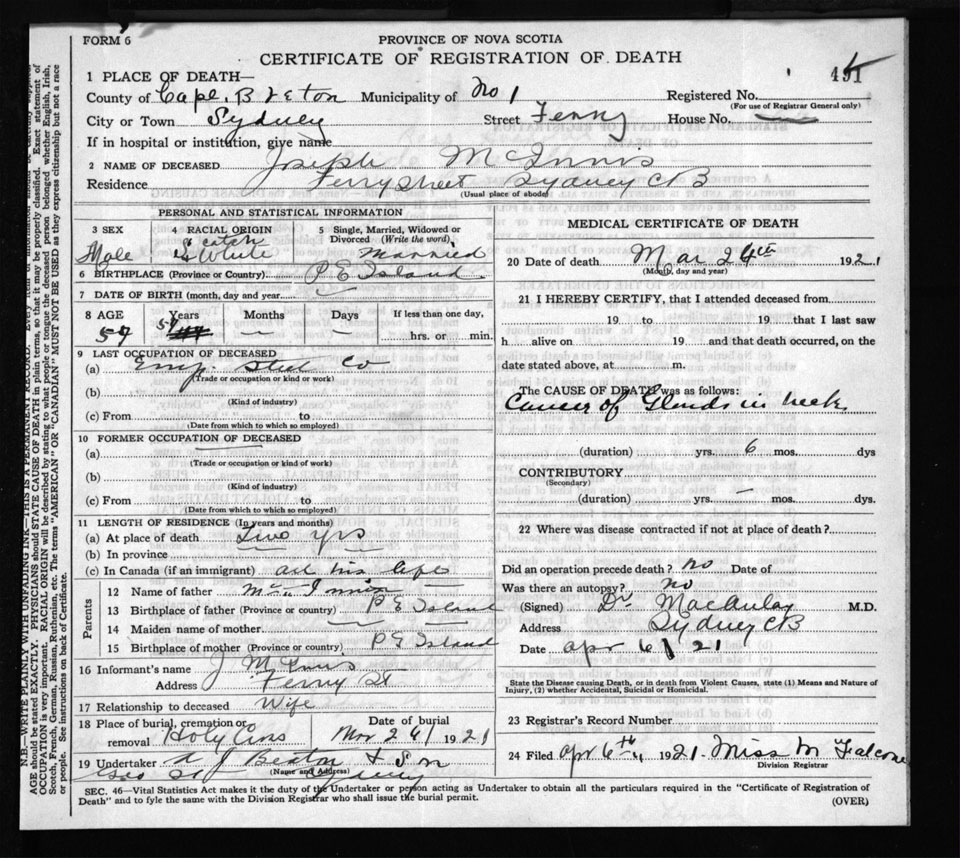 FORM 6
PROVINCE OF NOVA SCOTIA
CERTIFICATE OF REGISTRATION OF DEATH
1 PLACE OF DEATH—
County of Cape Breton Municipality of No 1 Registered No.
(For use of Registrar General only)
City or Town Sydney Street Ferry House No.
If in hospital or institution, give name
2 NAME OF DECEASED Joseph McInnis
Residence Ferry Street Sydney CB
(Usual place of abode)
PERSONAL AND STATISTICAL INFORMATION
3 SEX 4 RACIAL ORIGIN 5 Single, Married, Widowed or Divorced (Write the word)
Male White Married
6 BIRTHPLACE (Province or Country) P E Island
7 DATE OF BIRTH (month, day and year)
8 AGE Years Months Days If less than one day,
57 hrs. or min.
9 LAST OCCUPATION OF DECEASED
(a) Emp. Steel Co
(Trade or occupation or kind or work)
(b)
(Kind of industry)
(c) From to
(Date from which to which so employed)
10 FORMER OCCUPATION OF DECEASED
(a)
(Trade or occupation or kind of work)
(b)
(Kind of industry)
(c) From to
(Date from which to which so employed)
11 LENGTH OF RESIDENCE (In years and months)
(a) At place of death Two yrs
(b) In province
(c) In Canada (if an immigrant) all his life
Parents
12 Name of father
13 Birthplace of father (Province or country) P E Island
14 Maiden name of mother
15 Birthplace of mother (Province or country) P E Island
16 Informant's name J McInnis
Address Ferry St
17 Relationship to deceased Wife
18 Place of burial, cremation or removal Holy Cross Date of burial Mar 26 1921
19 Undertaker A J Beaton & Son
(Name and Address)
Geo St Sydney
MEDICAL CERTIFICATE OF DEATH
20 Date of death Mar 24th 1921
(Month, day and year)
21 I HEREBY CERTIFY, that I attended deceased from
19 to 19 that I last saw
h alive on 19 and that death occurred, on the
date stated above, at m.
The CAUSE OF DEATH was as follows:
Cancer of Glands in neck
(duration) yrs. 6 mos. dys
CONTRIBUTORY
(Secondary)
(duration) yrs. — mos. dys.
22 Where was disease contracted if not at place of death?
Did an operation precede death? no Date of
Was there an autopsy? no
(Signed) Dr MacAulay M.D.
Address Sydney CB
Date Apr 6 21
State the Disease causing Death, or in death from Violent Causes, state (1) Means and Nature of
Injury, (2) whether Accidental, Suicidal or Homicidal.
23 Registrar's Record Number
24 Filed Apr 6th 1921 Miss M Falcone
Division Registrar
SEC. 46—Vital Statistics Act makes it the duty of the Undertaker or person acting as Undertaker to obtain all the particulars required in the "Certificate of Registration of
Death" and to fyle the same with the Division Registrar who shall issue the burial permit.
(OVER)
N.B.—WRITE PLAINLY WITH UNFADING INK—THIS IS A PERMANENT RECORD.
AGE should be stated EXACTLY. PHYSICIANS should STATE CAUSE OF DEATH in plain terms, so that it may be properly classified. Exact statement of
OCCUPATION is very important. RACIAL ORIGIN will be described by stating to what people or tongue the deceased person belonged whether English, Irish,
Scotch, French, German, Russian, Ruthenian, etc. The terms "AMERICAN" OR "CANADIAN" MUST NOT BE USED as they express citizenship but not a race
or people. See instructions on back of Certificate.